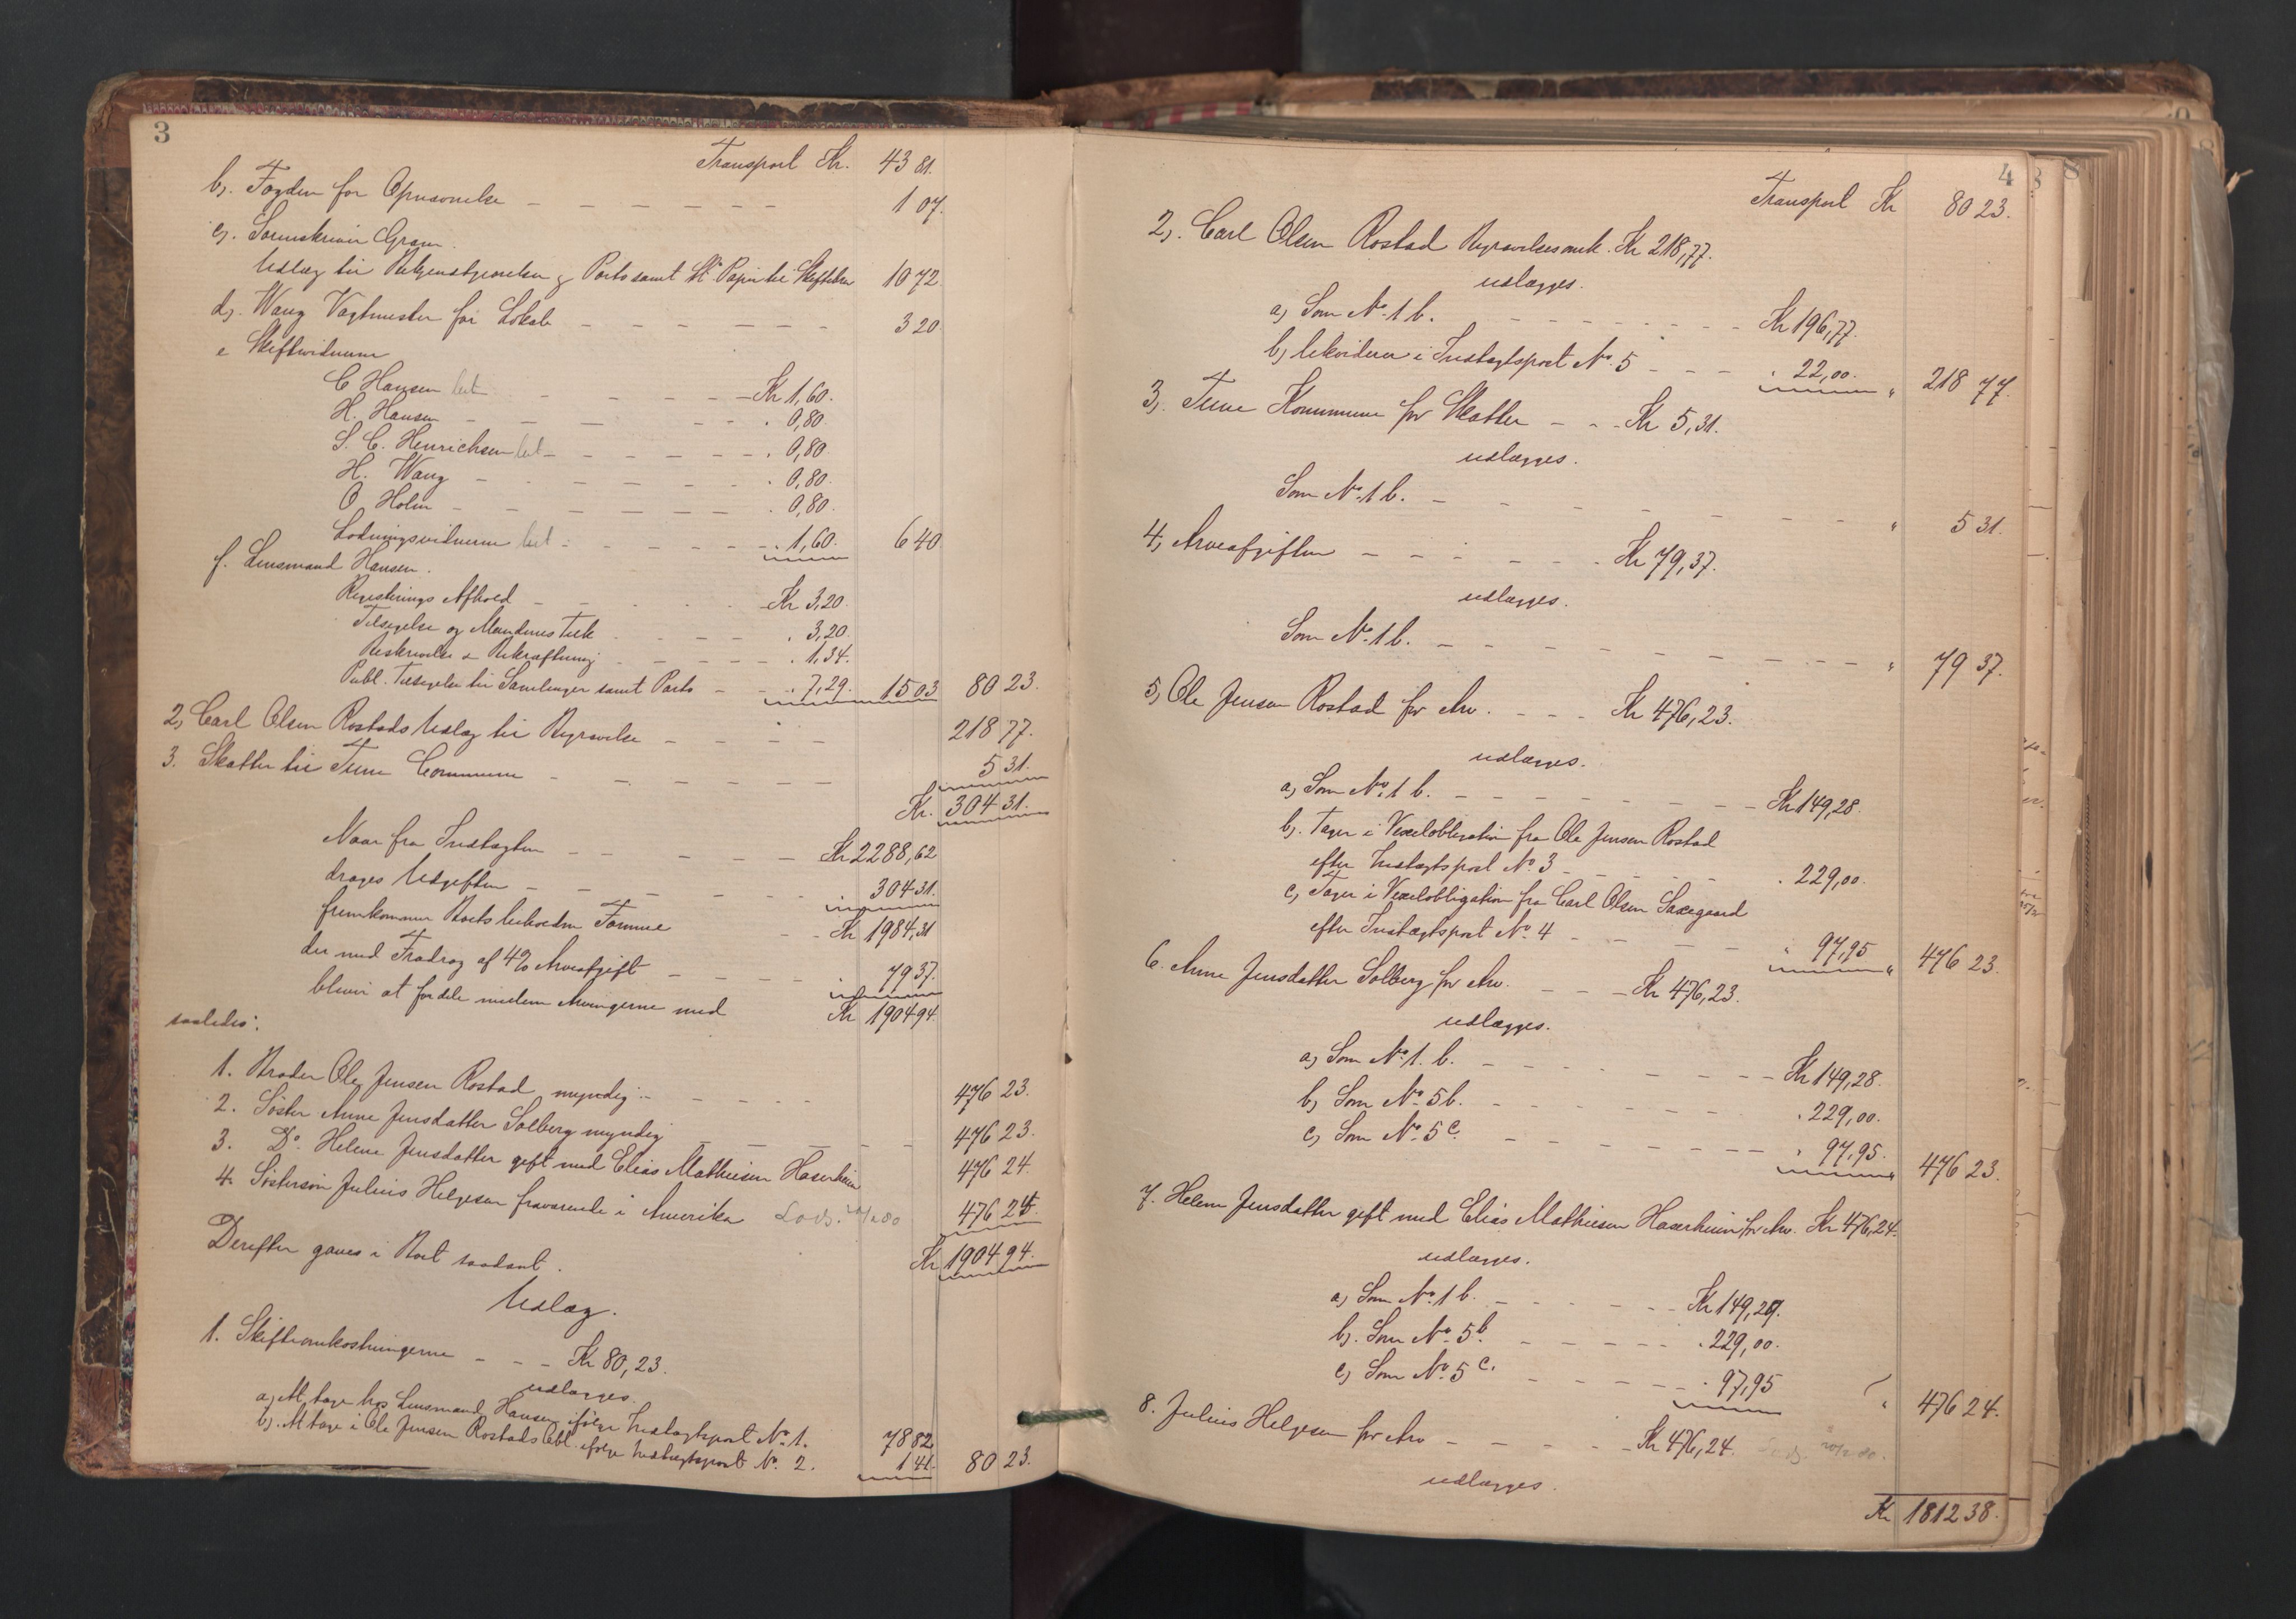 3
Transport Kr. 43 81.
b). Fogden for Opnævnelse — — — — — — 1 07.
c). Sorenskriver Gram.
Udlæg til Bekjendtgjørelser og Porto samt St. Papir til Skiftebr 10 72.
d). Wang Vagtmester for Lokale — — — — — — 3 20
e Skiftevidnerne
C Hansen bet — — — — — Kr 1,60.
H. Hansen — — — — — . 0,80.
S. C. Henrichsen bet — — — — — . 0,80.
H. Wang — — — — — . 0,80.
O Holm — — — — — . 0,80.
Lodningsvidnerne bet — — — — — . 1,60. 6 40
f. Lensmand Hansen.
Registerings Afhold — . . . Kr 3,20.
Tilsigelse og Mændenes Tilk . — — — . 3,20.
Beskrivelse & Bekræftning — — — — . 1,34.
Publ. Tilsigelse til Samlinger samt Porto — — . 7,29. 15 03 80 23.
2, Carl Olsen Rostads Udlæg til Begravelse — — — — 218 77.
3. Skatter til Tune Commune — — — — — 5 31.
Kr. 304 31.
Naar fra Indtægten — — — — — Kr 2288,62
drages Udgiften — — — — — 304 31.
fremkommer Boets beholdne Formue — — Kr 1984,31
der med Fradrag af 4% Arveafgift — — — — . 79 37.
bliver at fordele mellem Arvingerne med Kr 1904 94.
saaledes:
1. Broder Ole Jensen Rostad myndig — — — — — 476 23.
2. Søster Anne Jensdatter Solberg myndig — — — — — 476 23.
3. Do. Helene Jensdatter gift med Elias Mathiesen Haserheim 476 24.
4. Søstersøn Julius Helgesen fraværende i Amerika 476 24.
Kr 1904 94.
Derefter gaves i Boet saadant.
Udlæg.
1. Skifteomkostningerne — — — Kr 80,23.
udlægges.
a, At tage hos Lensmand Hansen ifølge Indtægtspost No. 1. 78 82
b). At tage i Ole Jensen Rostads Obl. ifølge Indtægtspost No. 2. 1 41. 80 23.
4
Transport Kr 80 23.
2). Carl Olsen Rostad Begravelsesomk. Kr 218,77.
udlægges.
a) Som No. 1 b. — — — — — — — Kr 196,77.
b) Likviderer i Indtægtspost No. 5 — — — . 22,00. " 218 77.
3). Tune Kommune for Skatter — — — Kr 5,31.
udlægges.
Som No. 1 b. — — — — — — — — — — " 5 31.
4, Arveafgiften — — — — — — Kr 79,37.
udlægges.
Som No. 1 b. — — — — — — — — — — — " 79 37.
5, Ole Jensen Rostad for Arv. — — — Kr 476,23.
udlægges.
a) Som No. 1 b. — — — — — — — — Kr 149,28.
b). Tager i Vexelobligation fra Ole Jensen Rostad
efter Indtægtspost No 3 — — — — — . 229,00.
c) Tager i Vexelobligation fra Carl Olsen Saxegaard
efter Indtægtspost No. 4 — — — — " 97,95 " 476 23.
6. Anne Jensdatter Solberg for Arv. — — — Kr 476,23.
udlægges.
a) Som No. 1. b. — — — — — — — — Kr 149,28.
b) Som No. 5 b. — — — — — — — — . 229,00.
c) Som No. 5 c. — — — — — — — — . 97,95. " 476 23.
7. Helene Jensdatter gift med Elias Mathiesen Haserheim for Arv. Kr 476,24.
udlægges.
a) Som No. 1 b. — — — — — — Kr 149,29.
b). Som No. 5 b. — — — — — — . 229,00.
c) Som No 5 c. — — — — — — . 97,95 " 476 24.
8. Julius Helgesen for Arv — — — — — Kr 476,24.
udlægges.
Kr 1812 38.